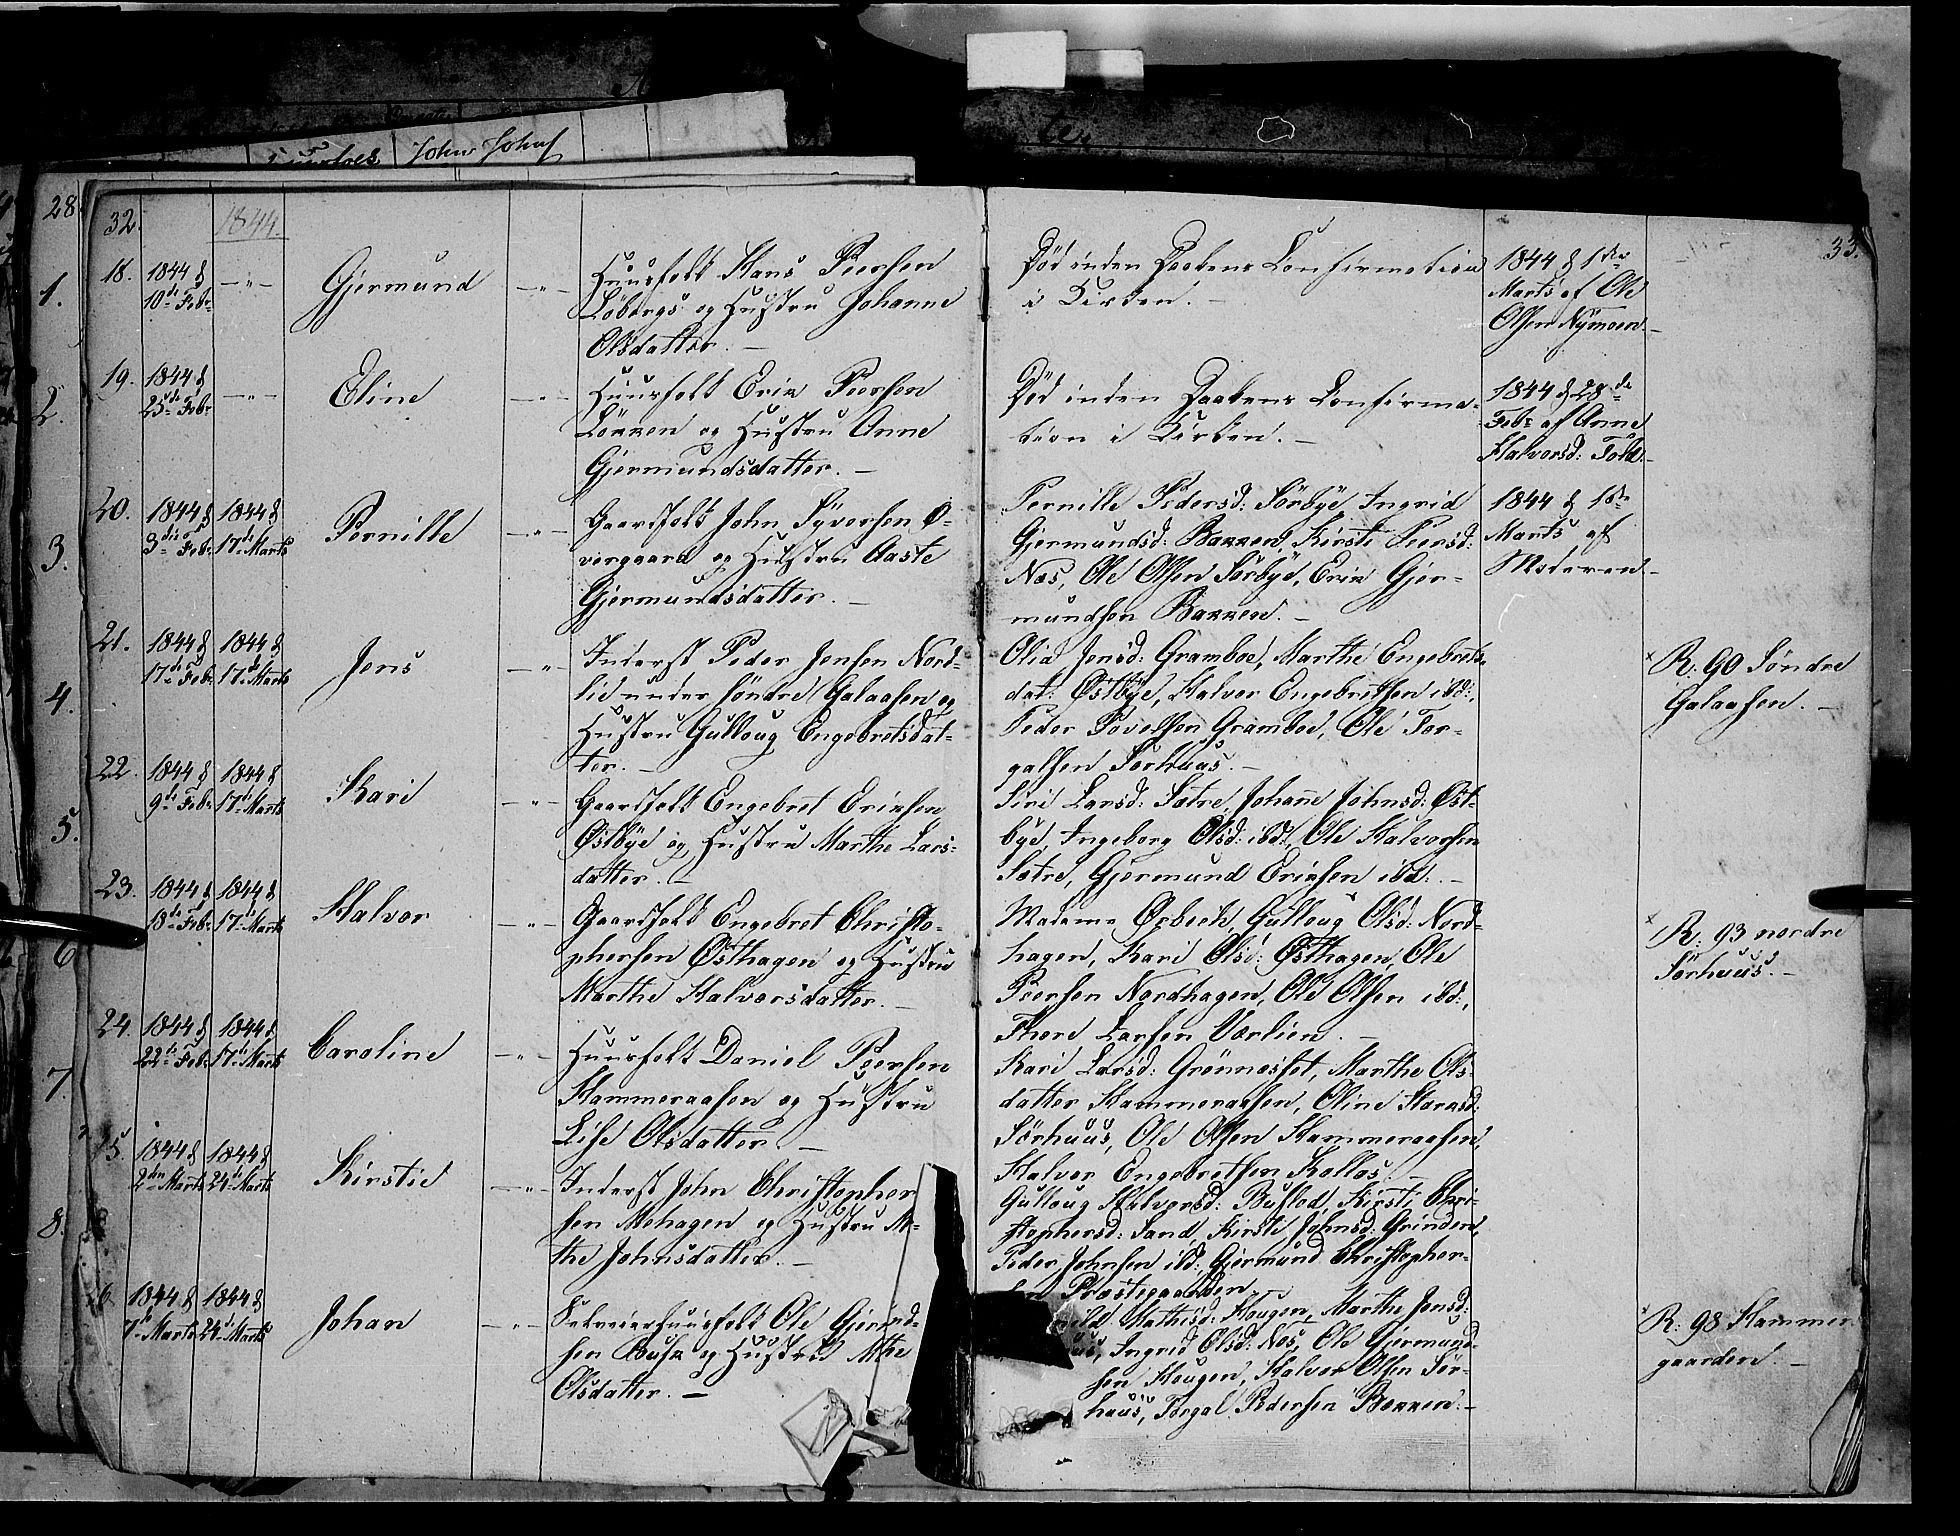 28
32.
1844.
33.
John Johns
18.
1844 d
10de Febr
—"—
Gjermund
—"—
Huusfolk Hans Peersen
Löbergs og Hustru Johanne
Olsdatter. —
Död inden Daabens Confirmation
i Kirken. —
1844 d 1ste
Marts af Ole
Olsen Nymoen. —
19.
1844 d
25de Febr
—"—
Eline
—"—
Huusfolk Erik Peersen
Lökken og Hustru Anne
Gjermundsdatter. —
Död inden Daabens Confirma-
tion i Kirken. —
1844 d 28de
Febr af Anne
Halvorsd:
20.
1844 d
3die Febr
1844 d
17de Marts
Pernille
—"—
Gaardfolk John Syversen O-
vergaard og Hustru Aaste
Gjermundsdatter. —
Pernille Pedersd: Sörbye, Ingrid
Gjermundsd: Bakken, Kirsti Peersd:
Næs, Ole Olsen Sörbye, Erik Gjer-
mundsen Bakken. —
1844 d 1ste
Marts af
Moderen. —
21.
1844 d
17de Febr
1844 d
17de Marts
Jens
—"—
Inderst Peder Jensen Nord-
lie under söndre Galaasen og
Hustru Gulloug Engebretsdat-
ter. —
Olia Jensd: Gramboe, Marthe Engebrets-
dat: Östbye, Halvor Engebretsen ibd:,
Peder Povelsen Gramboe, Ole Tor-
galsen Sörhuus. —
× R: 90 Söndre
Galaasen. —
22.
1844 d
9de Febr
1844 d
17de Marts
Kari
—"—
Gaardfolk Engebret Eriksen
Östbye og Hustru Marthe Lars-
datter. —
Siri Larsd: Sætre, Johane Johnsd: Öst-
bye, Ingeborg Olsd: ibd:, Ole Halvorsen
Sætre, Gjermund Eriksen ibd: —
23.
1844 d
18de Febr
1844 d
17de Marts
Halvor
—"—
Gaardfolk Engebret Christo-
phersen Östhagen og Hustru
Marthe Halvorsdatter. —
Madame Örbech, Gulloug Olsd: Nord-
hagen, Kari Olsd: Östhagen, Ole
Peersen Nordhagen, Ole Olsen ibd:,
Thore Larsen Værlien. —
× R: 93 nordre
Sörhuus. —
24.
1844 d
22de Febr
1844 d
17de Marts
Caroline
—"—
Huusfolk Daniel Peersen
Hammeraasen og Hustru
Lise Olsdatter. —
Kari Larsd: Grönnæsset, Marthe Ols-
datter Hammeraasen, Oline Hansd:
Sörhuus, Ole Olsen Hammeraasen,
Halvor Engebretsen Kollos. —
25.
1844 d
2den Marts
1844 d
24de Marts
Kirstie
—"—
Inderst John Christopher
sen Mehagen og Hustru M-
the Johnsdatter. —
Gulloug Halvorsd: Buflod, Kirsti Chri-
stophersd: Sand, Kirsti Johnsd: Grinden,
Peder Johnsen ibd:, Gjermund Christopher-
Præstegaarden.
6.
1844 d
7de Marts
1844 d
24de Marts
Johan
—"—
Selveierhuusfolk Ole Gjermd-
sen Busk og Hustru Mthe
Olsdatter. —
Mathisd: Hougen, Marthe Jensd:
Ingrid Olsd: Næs, Ole Gjermund-
sen Hougen, Halvor Olsen Sör-
huus, Torgal Pedersen Bakken. —
× R: 98 Hammer
gaarden. —
1.
2.
3.
4.
5.
6
7.
8.